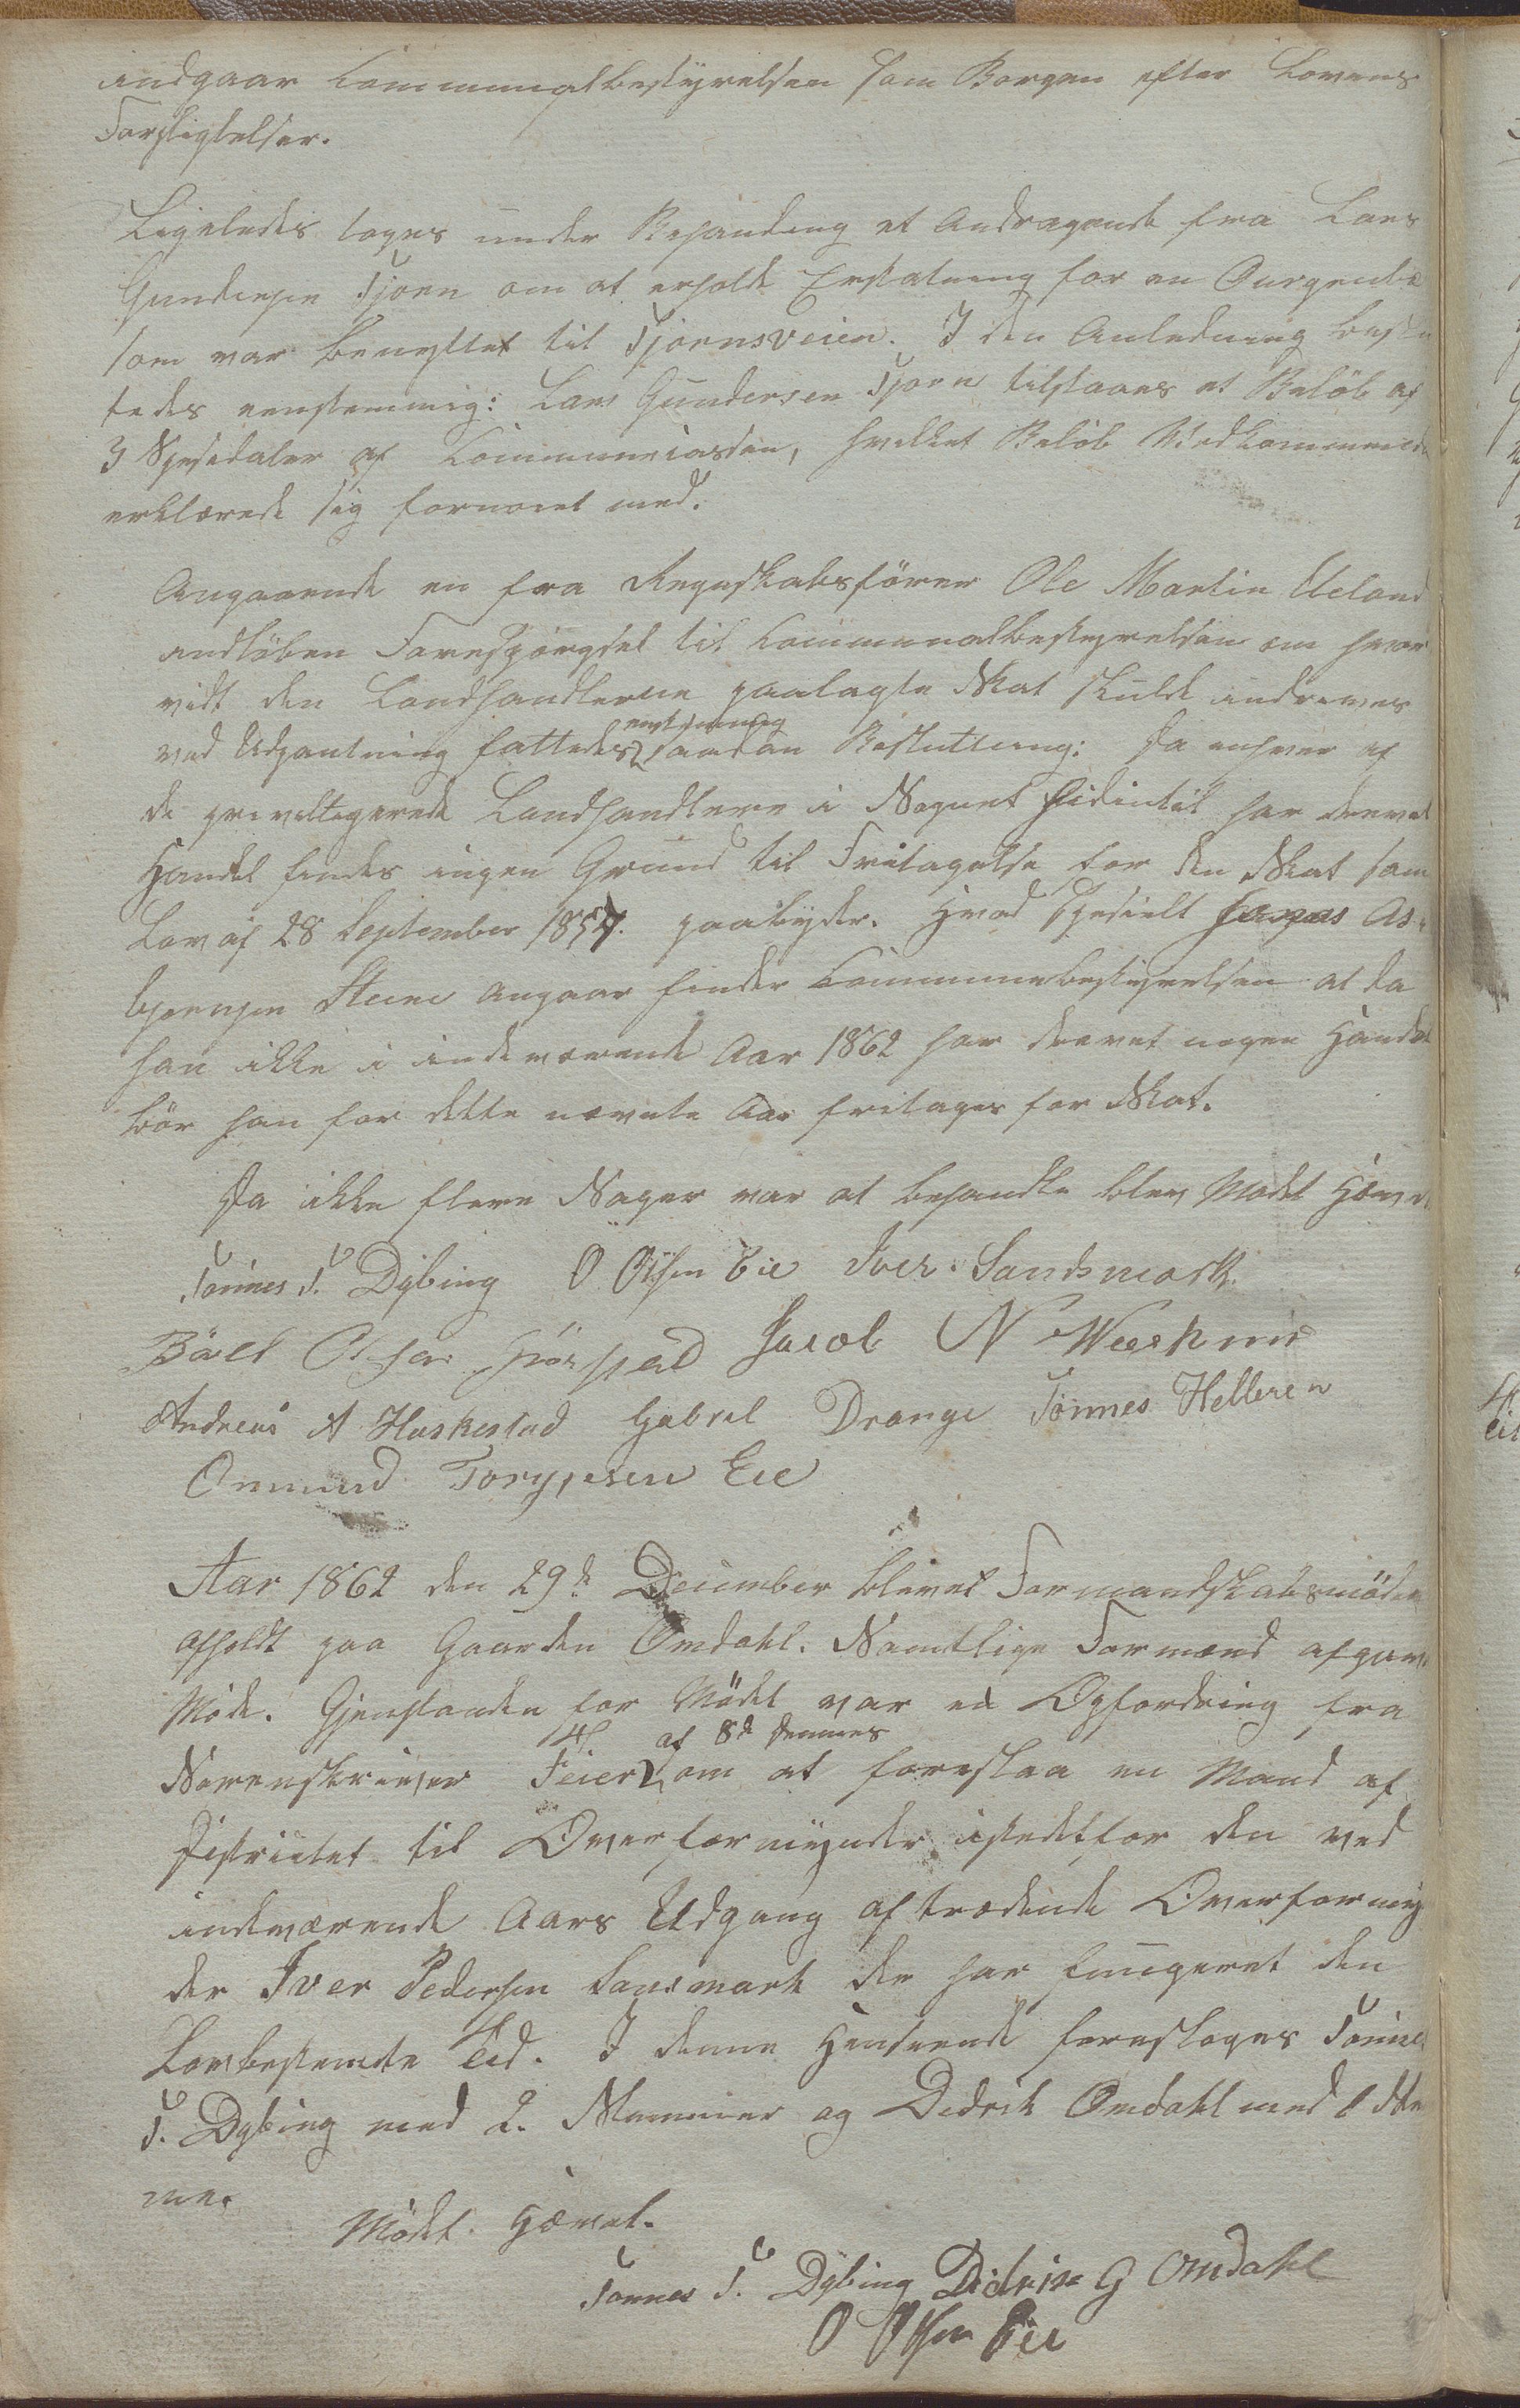 indgaar Communalbestyrelsen som Borgen efter Lovens
Forpligtelser.
Ligeledes toges under Behandling et Andragende fra Lars
Gundersen Tjorn om at erholde Erstatning for en
som var benyttet til Tjornsveien. I den Anledning beslu
tedes eenstemmig: Lars Gundersen Tjorn tilstaaes et Beløb af
3 Spesidaler af Communecassen, hvilket Beløb Vedkommende
erklærede sig fornøiet med.
Angaaende en fra Regnskabsfører Ole Martin Ueland
indløben Forespørgsel til Communalbestyrelsen om hvor
vidt den Landhandlerne paalagte Skat skulde inddrives
ved Udpantning fattedes eenstemmig saadan Beslutning: Da enhver af
de priviligerede Landhandlere i Sognet hidintil har drevet
Handel findes ingen Grund til Fritagelse for den Skat som
Lov af 28 September 1857. paabyder. Hvad spesielt Jonas As-
bjørnsen Steene angaar finder Communebestyrelsen at da
han ikke i indeværende Aar 1862 har drevet nogen Handel
bör han for dette nævnte Aar fritages for Skat.
Da ikke flere Sager var at behandle blev Mødet Hævet
Tönnes T. Dybing O Olsen Eie Iver Sandsmark.
Bael Olsen Jacob N
Andreas A Haskestad Gabrel Drange Tönnes Helleren
Ommund Torgersen Eie
Aar 1862 den 29de December blevet Formandskabsmøde
afholdt paa Gaarden Omdahl. Samtlige Formænd afgav
Møde. Gjenstanden for Mødet var en Opfordring fra
Sorenskriver Feier af 8de dennes om at foreslaa en Mand af
Districtet til Overformynder istedetfor den ved
indeværende Aars Udgang aftrædende Overformyn
der Iver Pedersen Sansmark der har fungeret den
Lovbestemte Tid. I denne Henseende foresloges Tönnes
T. Dybing med 2. Stemmer og Dedrik Omdahl med 1 Stem
me.
Mødet Hævet.
Tönnes T. Dybing Didrik G Omdahl
O Olsen Eie